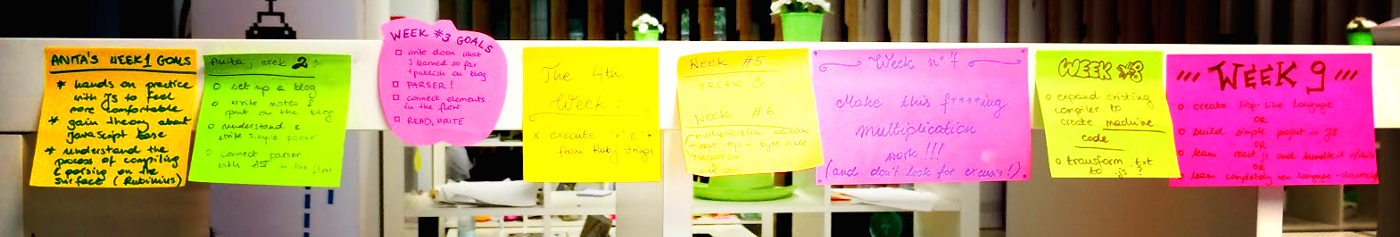 ANITA'S WEEK 1 GOALS
* hands on practice
with JS to feel
more comfortable
* gain theory about
javaScript base
* understand the
process of compiling
& parsing on the
surface (Rubinius)
Anita, week 2:
o set up a blog
o write notes &
put on the blog
o understand &
write simple parser
o connect parser
with AST in the flow
WEEK #3 GOALS
write down what
I learned so far
+ publish on blog
PARSER!
connect elements
in the flow
READ, WRITE
The 4th
Week:
x execute
from Ruby strings
Week #5
Week #6
Week n° 7
Make this f****ing
multiplication
work!!!
(and don't look for excuses!)
WEEK #8
o expand existing
compiler to
create machine
code
o transform txt
to .js?
WEEK 9
o create lisp-like language
OR
o build simple project in JS
OR
o learn react.js and
OR
o learn completely new language -